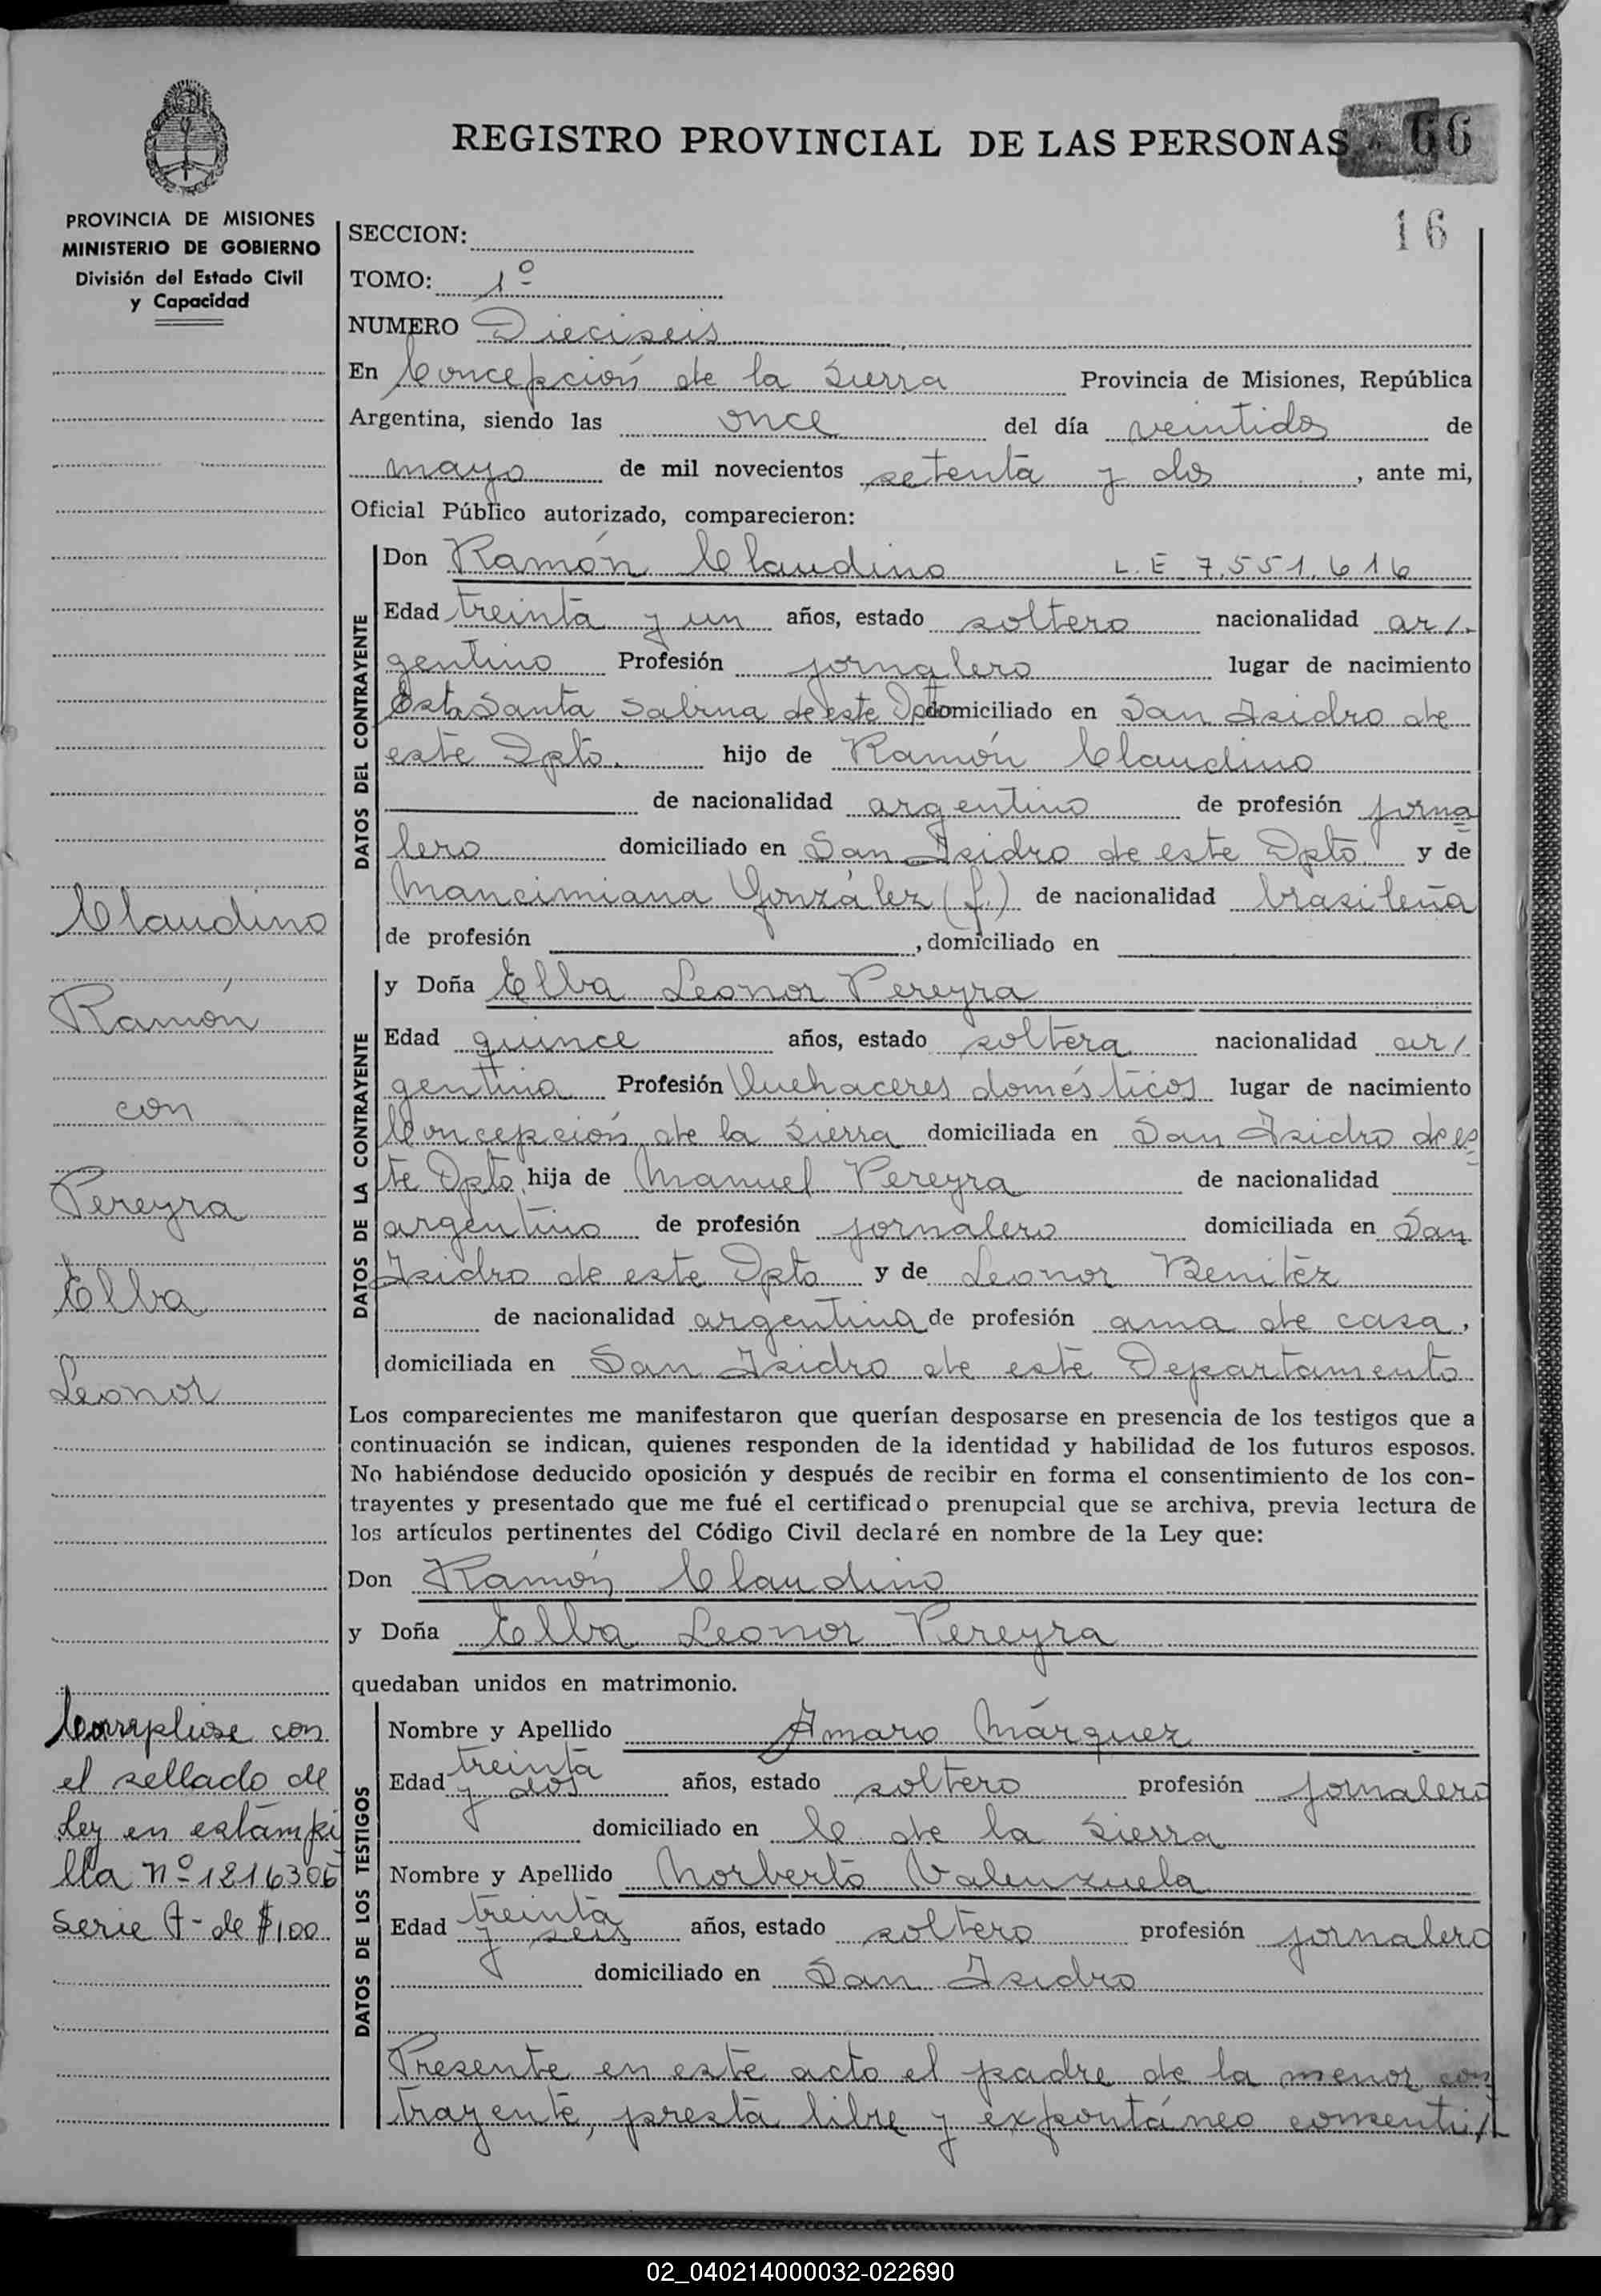 REGISTRO PROVINCIAL DE LAS PERSONAS 66
16
PROVINCIA DE MISIONES
MINISTERIO DE GOBIERNO
División del Estado Civil
y Capacidad
Claudino
Ramón
con
Pereyra
Elba
Leonor
Complióse con
el sellado de
Ley en estampi
lla Nº 1216306
Serie A- de $100
SECCION:
TOMO: 1º
NUMERO Dieciseis
En Concepción de la Sierra Provincia de Misiones, República
Argentina, siendo las once del día veintidos de
mayo de mil novecientos setenta y dos, ante mi,
Oficial Público autorizado, comparecieron:
DATOS DEL CONTRAYENTE
Don Ramón Claudino L.E 7.551.616
Edad treinta y un años, estado soltero nacionalidad ar/-
gentino Profesión jornalero lugar de nacimiento
Esta Santa Sabina de este Dpto domiciliado en San Isidro de
este Dpto. hijo de Ramón Claudino
de nacionalidad argentino de profesión jorna
lero domiciliado en San Isidro de este Dpto y de
Mancimiana González (f.) de nacionalidad brasileña
de profesión , domiciliado en
DATOS DE LA CONTRAYENTE
y Doña Elba Leonor Pereyra
Edad quince años, estado soltera nacionalidad ar/
gentina Profesión Quehaceres domésticos lugar de nacimiento
Concepción de la Sierra domiciliada en San Isidro de es
te Dpto hija de Manuel Pereyra de nacionalidad
argentino de profesión jornalero domiciliada en San
Isidro de este Dpto y de Leonor Benitez
de nacionalidad argentina de profesión ama de casa,
domiciliada en San Isidro de este Departamento
Los comparecientes me manifestaron que querían desposarse en presencia de los testigos que a
continuación se indican, quienes responden de la identidad y habilidad de los futuros esposos.
No habiéndose deducido oposición y después de recibir en forma el consentimiento de los con-
trayentes y presentado que me fué el certificado prenupcial que se archiva, previa lectura de
los artículos pertinentes del Código Civil declaré en nombre de la Ley que:
Don Ramón Claudino
y Doña Elba Leonor Pereyra
quedaban unidos en matrimonio.
DATOS DE LOS TESTIGOS
Nombre y Apellido Amaro Márquez
Edad treinta y dos años, estado soltero profesión jornalero
domiciliado en C de la Sierra
Nombre y Apellido Norberto Valenzuela
Edad treinta y seis años, estado soltero profesión jornalero
domiciliado en San Isidro
Presente en este acto el padre de la menor con
trayente, presta libre y expontáneo consenti/-
02_040214000032-022690